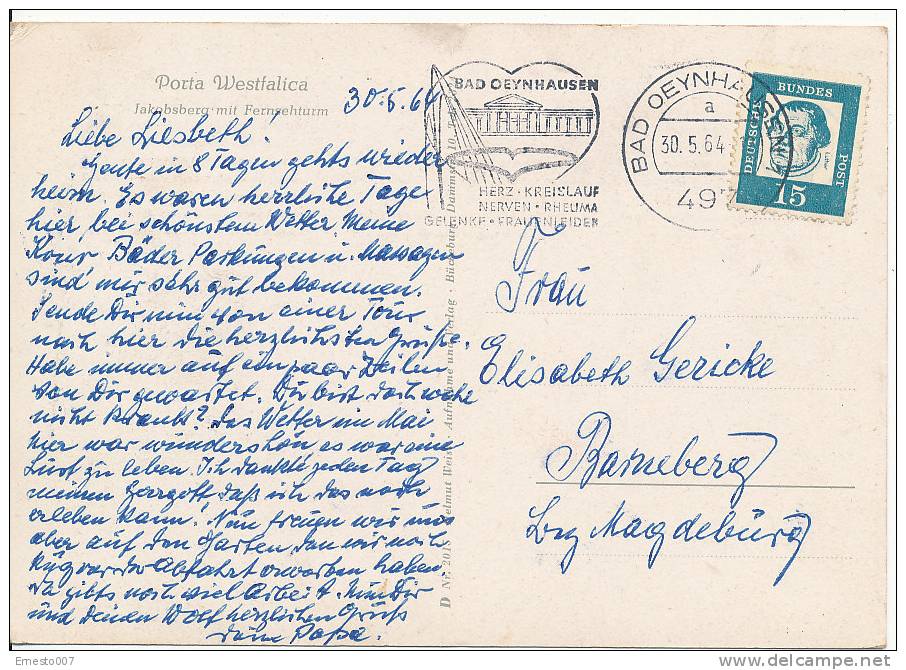 Porta Westfalica
Jakobsberg mit Fernsehturm
30.5.64
Liebe Liesbeth!
Heute in 8 Tagen gehts wieder
heim. Es waren herrliche Tage
hier, bei schönstem Wetter. Meine
Kour Bäder Packungen u. Massagen
sind mir sehr gut bekommen.
Sende Dir nun von einer Tour
nach hier die herzlichsten Grüße.
Habe immer auf ein paar Zeilen
von Dir gewartet. Du bist doch wohl
nicht krank? Das Wetter im Mai
hier war wunderschön, es war eine
Lust zu leben. Ich dankte jeden Tag
meinen Herrgott, daß ich das noch
erleben kann! Nun freuen wir uns
aber auf den Garten, den wir noch
kurz vor der Abfahrt erworben haben.
Da gibts noch viel Arbeit. Nun Dir
und deinen Wolf herzlichen Gruß
dein Papa.
D Nr. 2018 Helmut Weis Aufnahme und Verlag · Bückeburg, Dammstr. 10, Te
BAD OEYNHAUSEN
HERZ · KREISLAUF
NERVEN · RHEUMA
GELENKE · FRAUENLEIDEN
BAD OEYNHAUSEN
a
30.5.64
497
DEUTSCHE
BUNDES
POST
15
Frau
Elisabeth Gericke
Barneberg
Bez Magdeburg
Ernesto007
www.delcampe.net